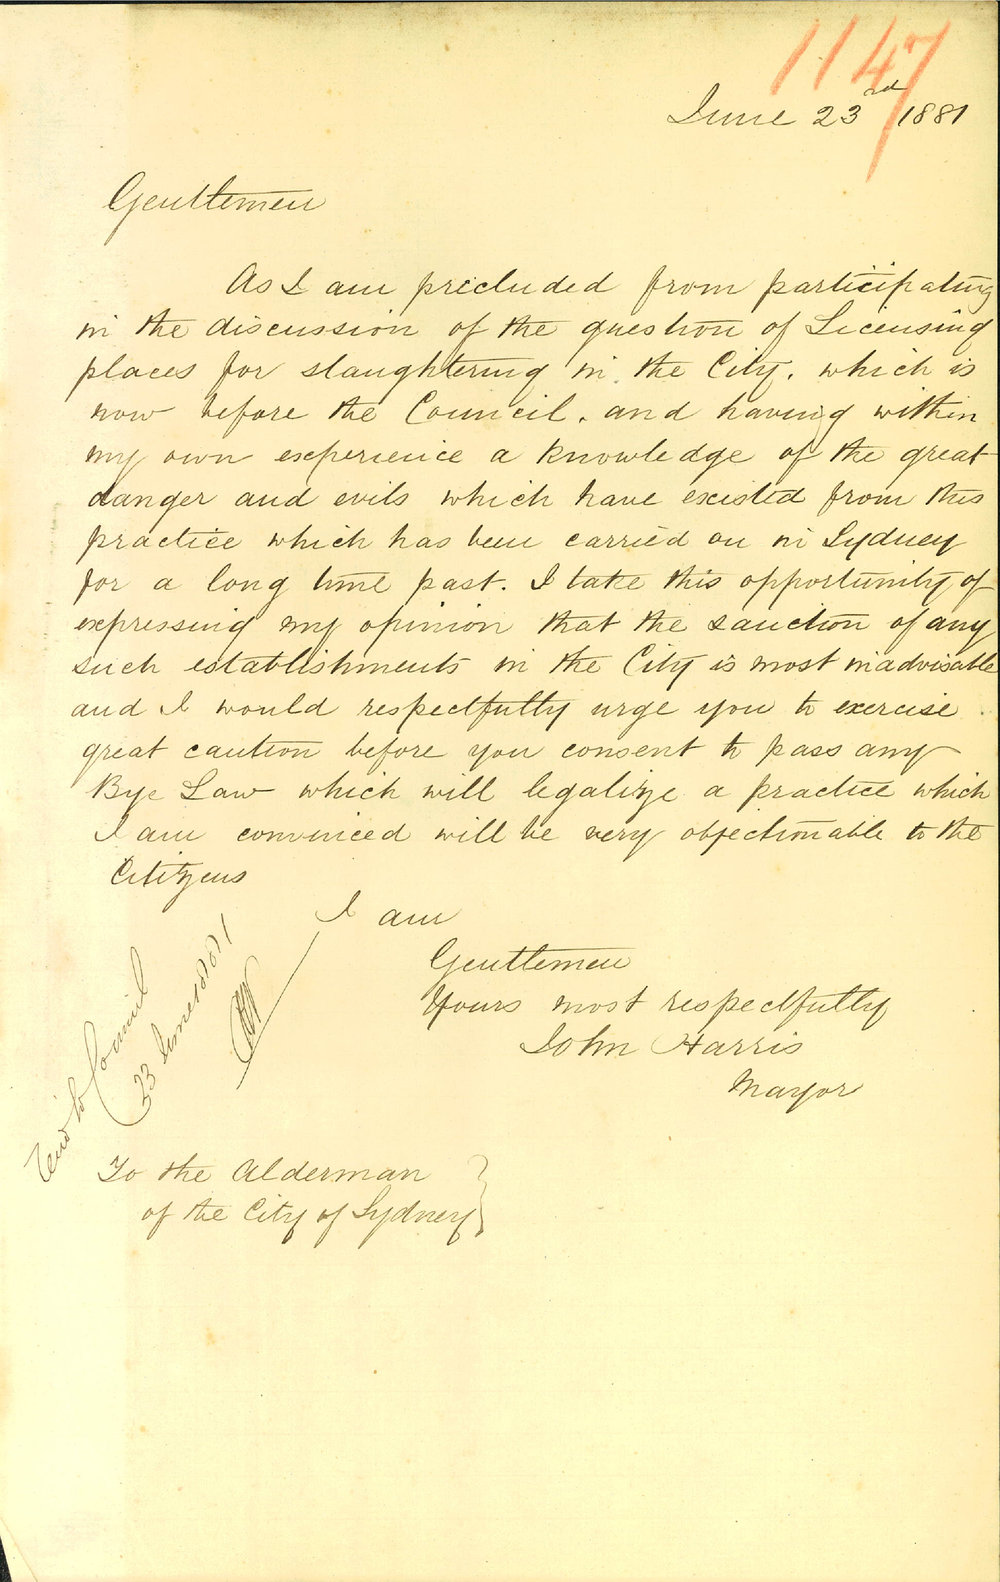 1147
June 23rd 1881
Gentlemen
As I am precluded from participating
in the discussion of the question of Licensing
places for slaughtering in the City. which is
now before the Council. and having within
my own experience a knowledge of the great
danger and evils which have existed from this
practice which has been carried on in Sydney
for a long time past. I take this opportunity of
expressing my opinion that the sanction of any
such establishments in the City is most inadvisable
and I would respectfully urge you to exercise
great caution before you consent to pass any
Bye Law which will legalize a practice which
I am convinced will be very objectionable to the
Citizens
I am
Gentlemen
Yours most respectfully
John Harris
Mayor
to Council
23 June 1881
To the Alderman
of the City of Sydney